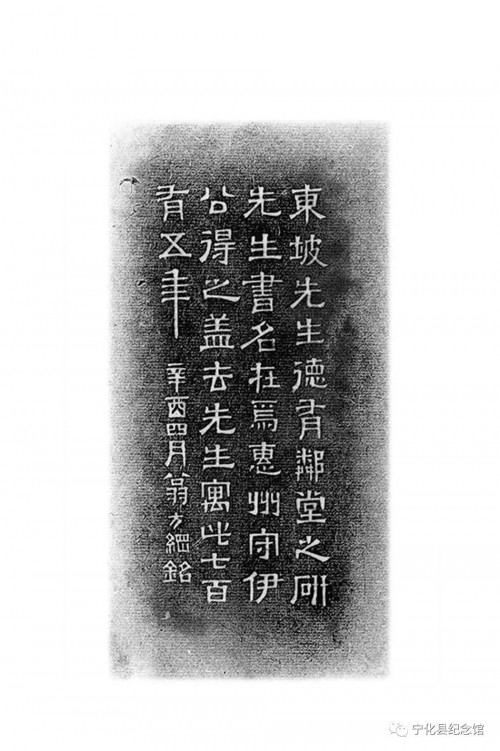 東坡先生德有鄰堂之研
先生書名在焉惠州守伊
公得之蓋去先生寓此七百
有五年
辛酉四月翁方綱銘
宁化县纪念馆